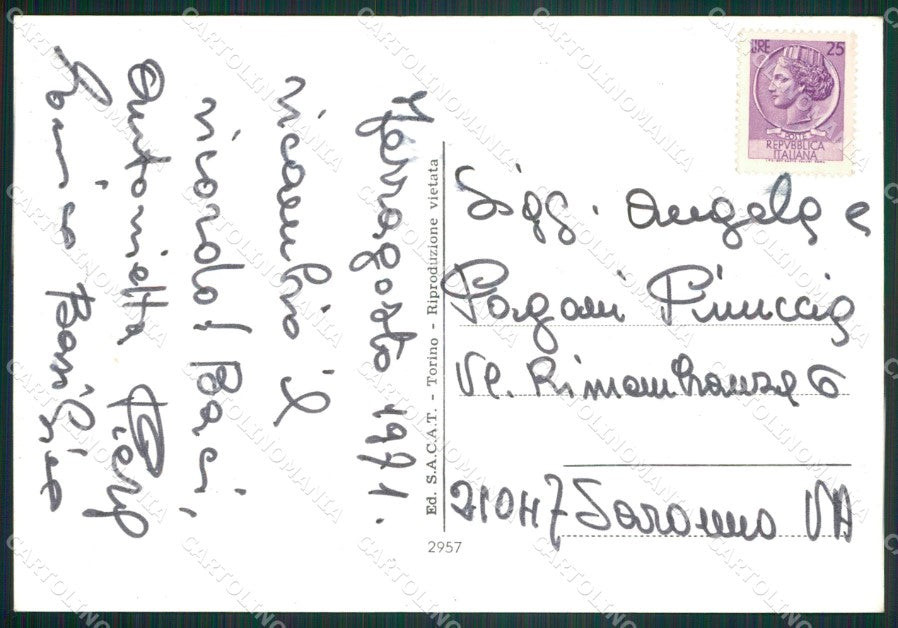 Ferragosto 1971.
ricambio il
ricordo! Baci,
Antonietta Pier
Gianni e Bambina
Ed. S.A.C.A.T. - Torino - Riproduzione vietata
2957
LIRE 25
POSTE
REPVBBLICA
ITALIANA
Sigg. Angela e
Pagani Pinuccia
Vl. Rimembranze 6
21047 Saronno VA
CARTOLINOMANIA